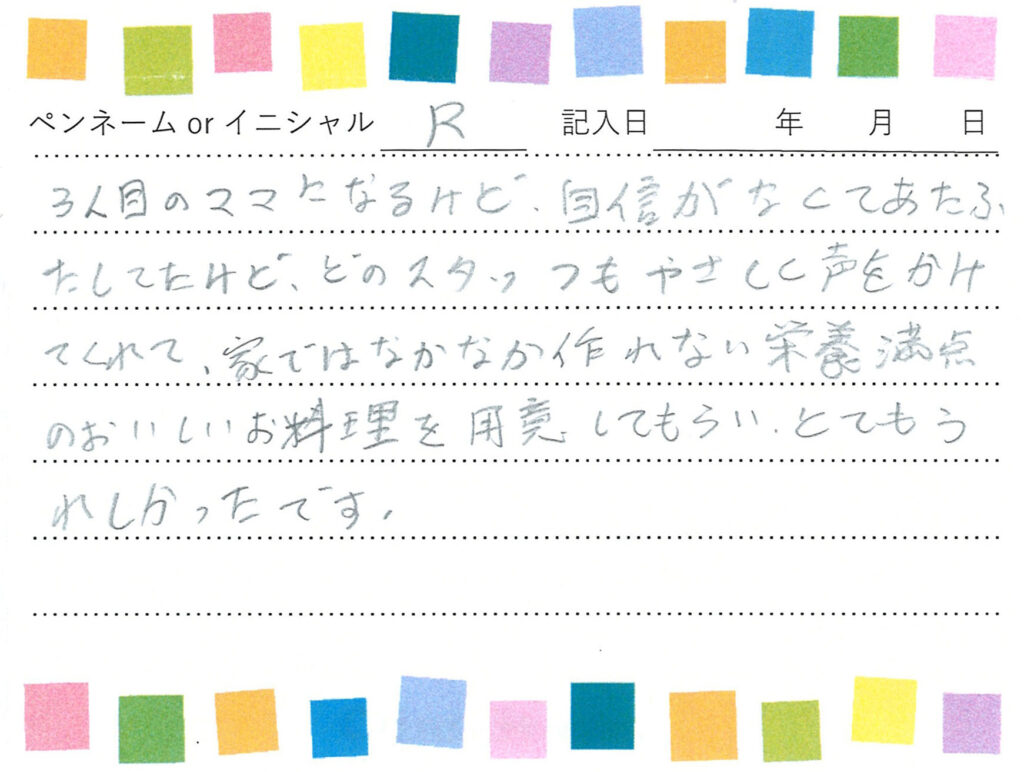 ペンネーム or イニシャル R 記入日 年 月 日
3人目のママになるけど、自信がなくてあたふ
たしてたけど、どのスタッつもやさしく声をかけ
てくれて、家ではなかなか作れない栄養満点
のおいしいお料理を用意してもらい、とてもう
れしかったです。